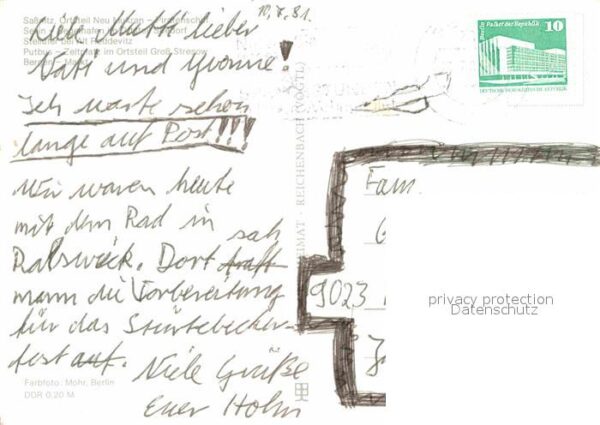 10.7.81.
Saßnitz, Ortsteil Neu
Steilufer bei Alt Reddevitz
Putbus – Zeltplatz im Ortsteil Groß Stresow
Bergen – Markt
Liebe Mutti lieber
Vati und Yvonne!
Ich warte schon
lange auf Post!!!
Wir waren heute
mit dem Rad in
Ralswiek. Dort sah
mann die Vorbereitung
für das Störtebecker-
fest auf. Viele Grüße
Euer Holm
Farbfoto: Mohr, Berlin
DDR 0,20 M
HEIMAT · REICHENBACH (VOGTL)
Berlin Palast der Republik
10
DEUTSCHE DEMOKRATISCHE REPUBLIK
Fam.
9023
privacy protection
Datenschutz